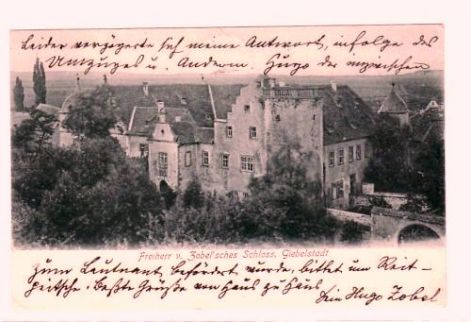 Leider verzögerte sich meine Antwort, infolge des
Umzuges u. Anderm. Hugo der inzwischen
Freiherr v. Zobel'sches Schloss, Giebelstadt
zum Leutnant, befördert wurde, bittet um Reit-
peitsche. Beßte Grüße von Haus zu Haus
Dein Hugo Zobel